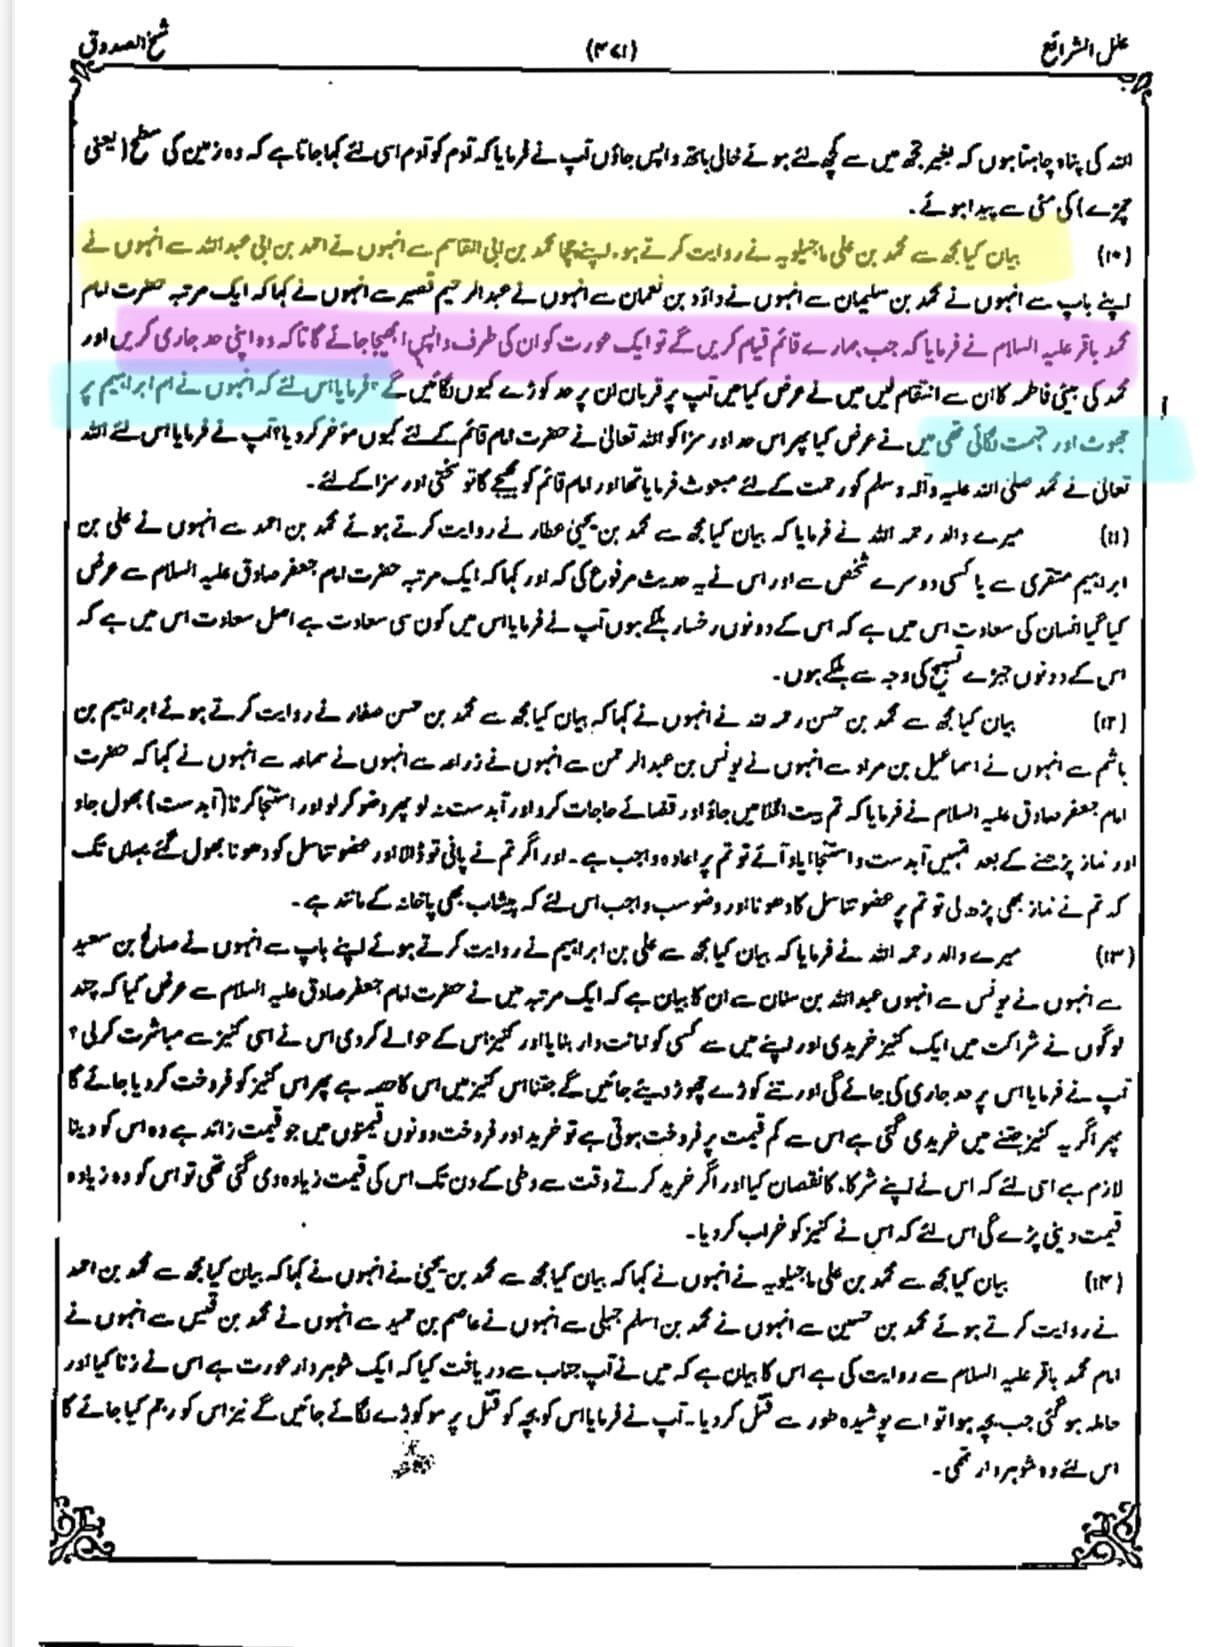 علل الشرائع (۴۷۱) شیخ الصدوق
اللہ کی پناہ چاہتا ہوں کہ بغیر تجھ میں سے کچھ لئے ہوئے خالی ہاتھ واپس جاؤں آپ نے فرمایا کہ آدم کو آدم اسی لئے کہا جاتا ہے کہ وہ زمین کی سطح (یعنی
چمڑے) کی مٹی سے پیدا ہوئے۔
(۱۰) بیان کیا مجھ سے محمد بن علی ماجیلویہ نے روایت کرتے ہوئے اپنے چچا محمد بن ابی القاسم سے انہوں نے احمد بن ابی عبداللہ سے انہوں نے
اپنے باپ سے انہوں نے محمد بن سلیمان سے انہوں نے داؤد بن نعمان سے انہوں نے عبدالرحیم قصیر سے انہوں نے کہا کہ ایک مرتبہ حضرت امام
محمد باقر علیہ السلام نے فرمایا کہ جب ہمارے قائم قیام کریں گے تو ایک عورت کو ان کی طرف واپس بھیجا جائے گا تاکہ وہ اپنی حد جاری کریں اور
محمد کی بیٹی فاطمہ کا ان سے انتقام لیں میں نے عرض کیا میں آپ پر قربان ان پر حد کوڑے کیوں لگائیں گے؟ فرمایا اس لئے کہ انہوں نے ام ابراہیم پر
جھوٹ اور تہمت لگائی تھی میں نے عرض کیا پھر اس حد اور سزا کو اللہ تعالیٰ نے حضرت امام قائم کے لئے کیوں مؤخر کر دیا؟ آپ نے فرمایا اس لئے اللہ
تعالیٰ نے محمد صلی اللہ علیہ وآلہ وسلم کو رحمت کے لئے مبعوث فرمایا تھا اور امام قائم کو بھیجے گا تو سختی اور سزا کے لئے۔
(۱۱) میرے والد رحمہ اللہ نے فرمایا کہ بیان کیا مجھ سے محمد بن یحییٰ عطار نے روایت کرتے ہوئے محمد بن احمد سے انہوں نے علی بن
ابراہیم منقری سے یا کسی دوسرے شخص سے اور اس نے یہ حدیث مرفوع کی کہ اور کہا کہ ایک مرتبہ حضرت امام جعفر صادق علیہ السلام سے عرض
کیا گیا انسان کی سعادت اس میں ہے کہ اس کے دونوں رخسار ہلکے ہوں آپ نے فرمایا اس میں کون سی سعادت ہے اصل سعادت اس میں ہے کہ
اس کے دونوں جبڑے تسبیح کی وجہ سے ہلکے ہوں۔
(۱۲) بیان کیا مجھ سے محمد بن حسن رحمہ اللہ نے انہوں نے کہا کہ بیان کیا مجھ سے محمد بن حسن صفار نے روایت کرتے ہوئے ابراہیم بن
ہاشم سے انہوں نے اسماعیل بن مراد سے انہوں نے یونس بن عبدالرحمن سے انہوں نے زراعہ سے انہوں نے سماعہ سے انہوں نے کہا کہ حضرت
امام جعفر صادق علیہ السلام نے فرمایا کہ تم بیت الخلا میں جاؤ اور قضائے حاجات کرو اور آبدست نہ لو پھر وضو کر لو اور استنجا کرنا (آبدست) بھول جاؤ
اور نماز پڑھنے کے بعد تمہیں آبدست و استنجا یاد آئے تو تم پر اعادہ واجب ہے۔ اور اگر تم نے پانی تو ڈالا اور عضو تناسل کو دھونا بھول گئے یہاں تک
کہ تم نے نماز بھی پڑھ لی تو تم پر عضو تناسل کا دھونا اور وضو سب واجب اس لئے کہ پیشاب بھی پاخانہ کے مانند ہے۔
(۱۳) میرے والد رحمہ اللہ نے فرمایا کہ بیان کیا مجھ سے علی بن ابراہیم نے روایت کرتے ہوئے اپنے باپ سے انہوں نے صالح بن سعید
سے انہوں نے یونس سے انہوں عبداللہ بن سنان سے ان کا بیان ہے کہ ایک مرتبہ میں نے حضرت امام جعفر صادق علیہ السلام سے عرض کیا کہ چند
لوگوں نے شراکت میں ایک کنیز خریدی اور اپنے میں سے کسی کو امانت دار بنایا اور کنیز اس کے حوالے کر دی اس نے اسی کنیز سے مباشرت کر لی؟
آپ نے فرمایا اس پر حد جاری کی جائے گی اور اتنے کوڑے چھوڑ دیئے جائیں گے جتنا اس کنیز میں اس کا حصہ ہے پھر اس کنیز کو فروخت کر دیا جائے گا
پھر اگر یہ کنیز جتنے میں خریدی گئی ہے اس سے کم قیمت پر فروخت ہوتی ہے تو خرید اور فروخت دونوں قیمتوں میں جو قیمت زائد ہے وہ اس کو دینا
لازم ہے اسی لئے کہ اس نے اپنے شرکاء کا نقصان کیا اور اگر خرید کرتے وقت سے وطی کے دن تک اس کی قیمت زیادہ دی گئی تھی تو اس کو وہ زیادہ
قیمت دینی پڑے گی اس لئے کہ اس نے کنیز کو خراب کر دیا۔
(۱۴) بیان کیا مجھ سے محمد بن علی ماجیلویہ نے انہوں نے کہا کہ بیان کیا مجھ سے محمد بن یحییٰ نے انہوں نے کہا کہ بیان کیا مجھ سے محمد بن احمد
نے روایت کرتے ہوئے محمد بن حسین سے انہوں نے محمد بن اسلم جبلی سے انہوں نے عاصم بن حمید سے انہوں نے محمد بن قیس سے انہوں نے
امام محمد باقر علیہ السلام سے روایت کی ہے اس کا بیان ہے کہ میں نے آپ جناب سے دریافت کیا کہ ایک شوہر دار عورت ہے اس نے زنا کیا اور
حاملہ ہو گئی جب بچہ ہوا تو اسے پوشیدہ طور سے قتل کر دیا۔ آپ نے فرمایا اس کو بچہ کو قتل پر سو کوڑے لگائے جائیں گے نیز اس کو رجم کیا جائے گا
اس لئے وہ شوہر دار تھی۔